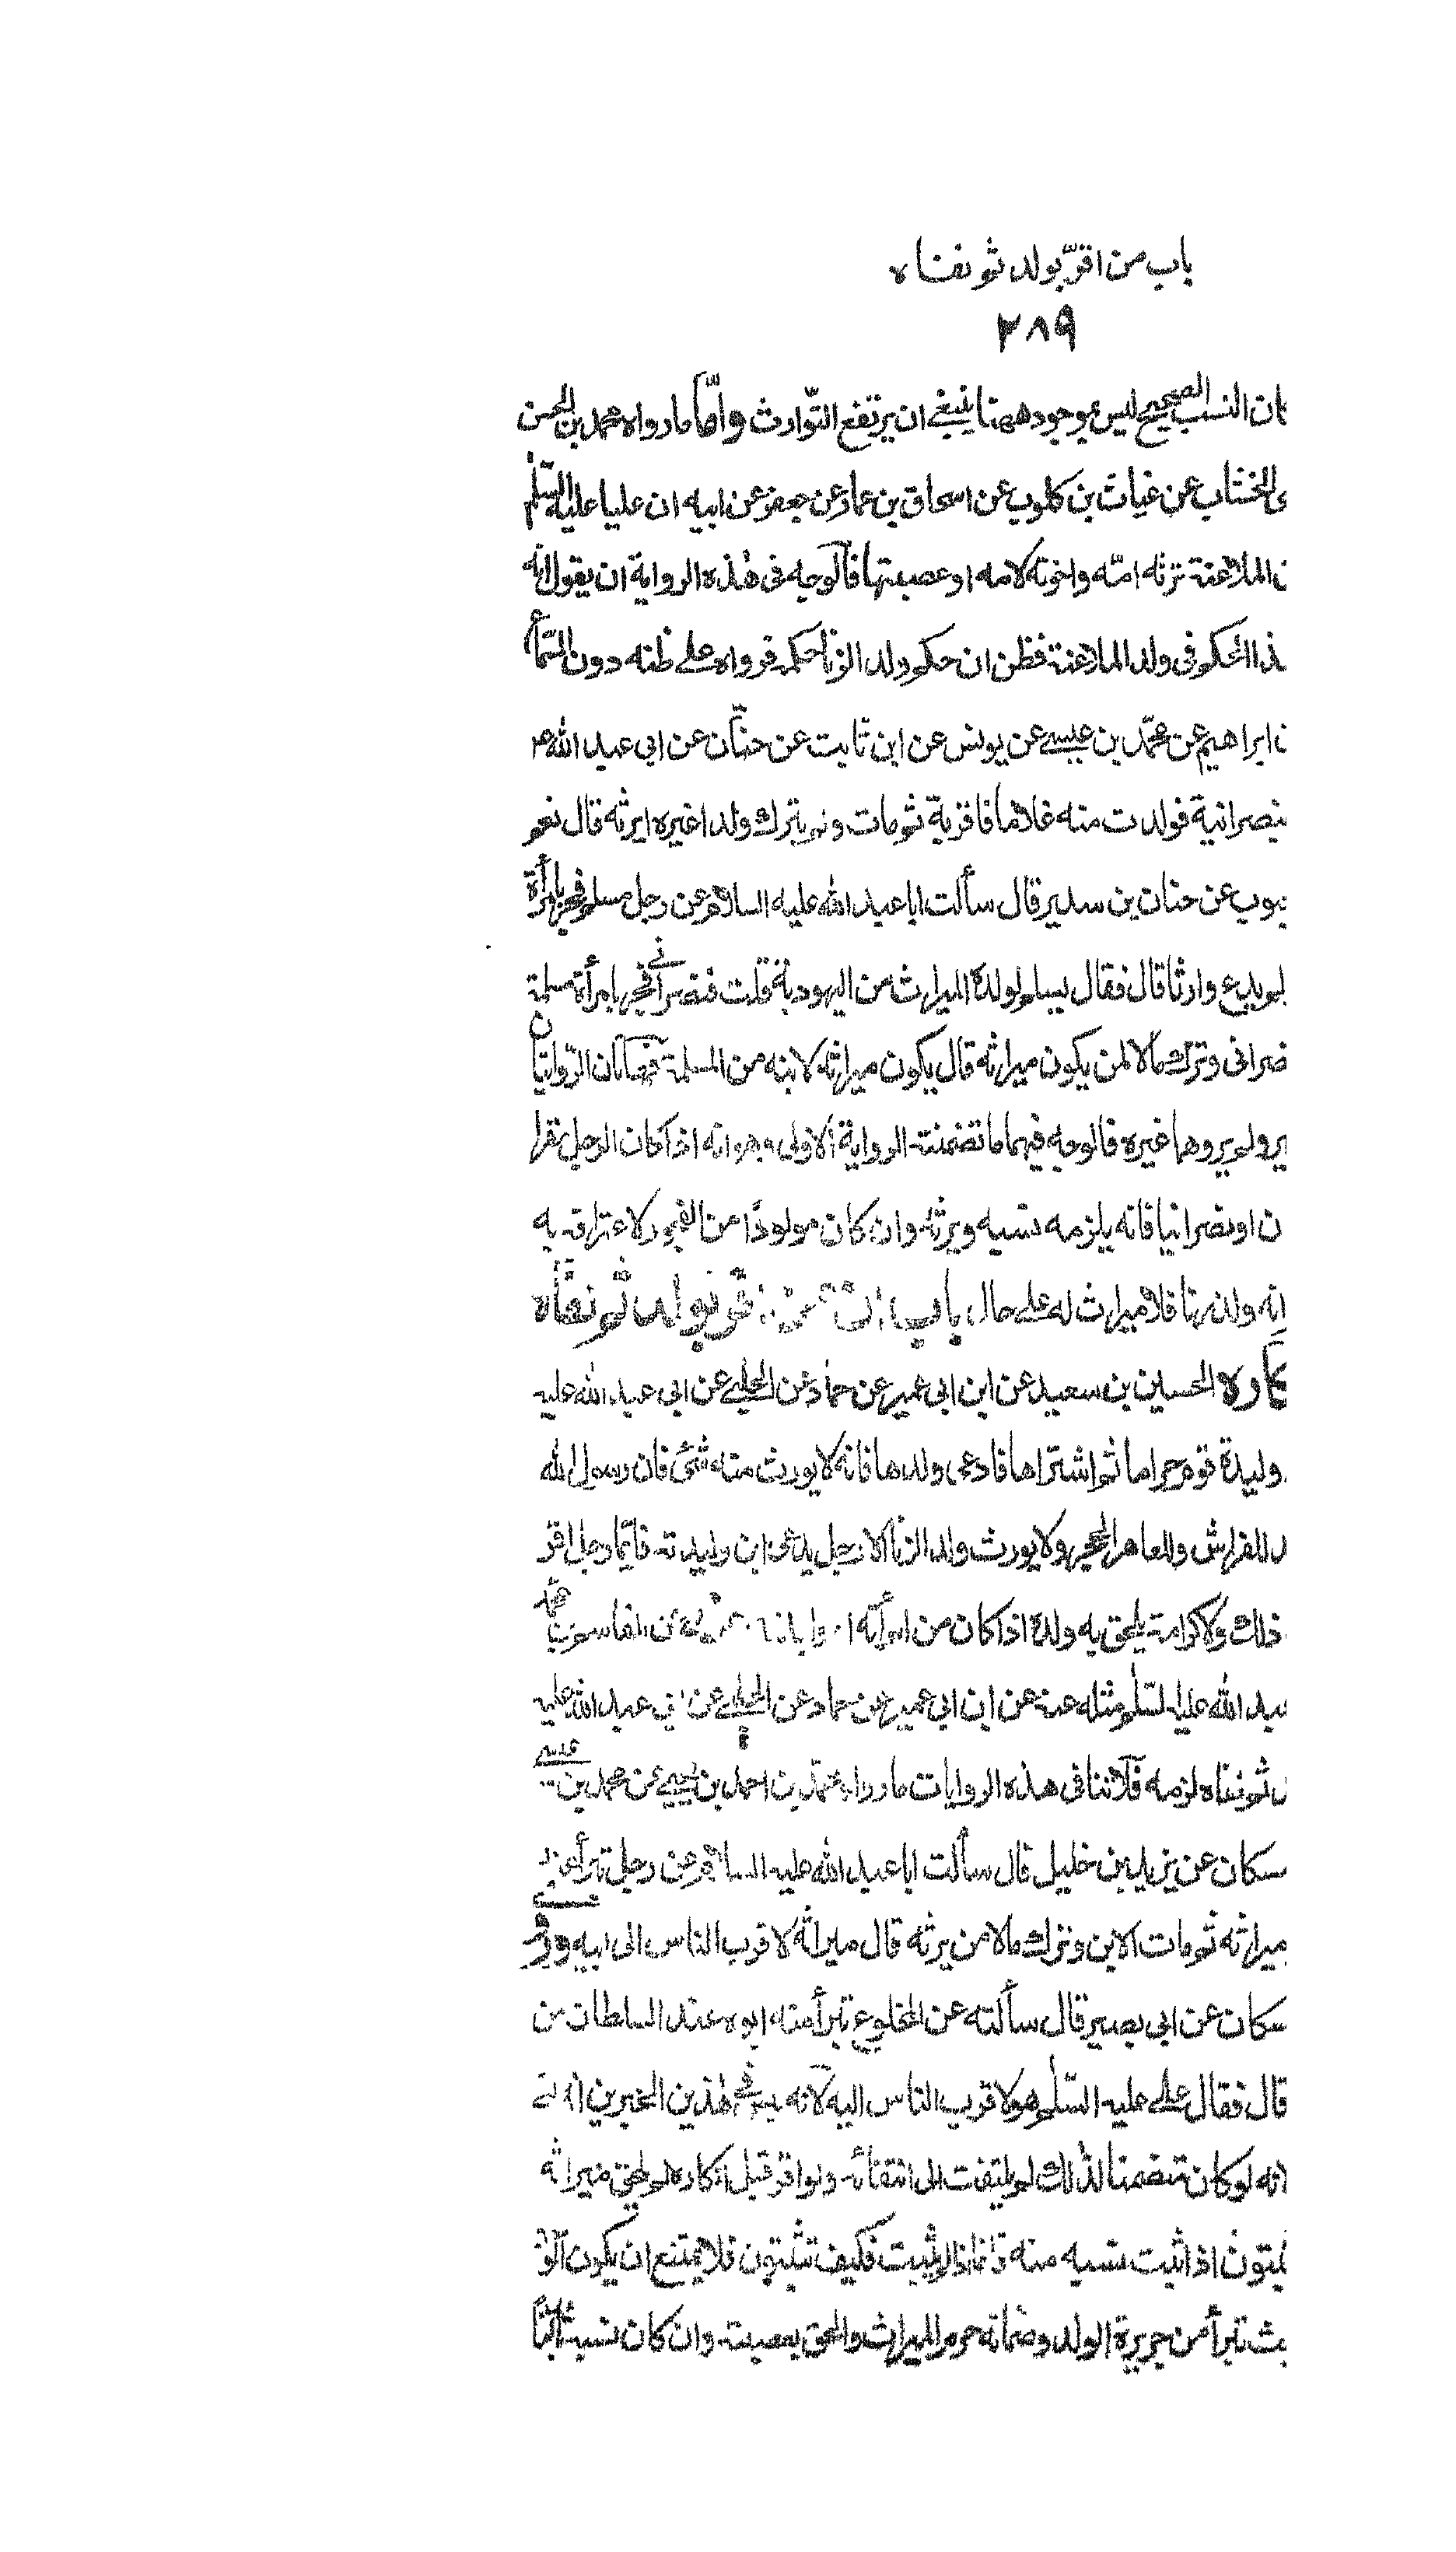 باب من اقرّ بولد ثم نفاه
٢٨٩
كان النسب الصحيح ليس بموجود ههنا ينبغي ان يرتفع التّوارث وأمّا ما رواه محمد بن الحسن
ى الخشاب عن غياث بن كلوب عن اسحاق بن عمار عن جعفر عن ابيه ان عليا عليه السّلم
ن الملاعنة ترثه امّه واخوته لامه او عصبتها فالوجه فى هذه الرواية ان يقول انه
ذا الحكم فى ولد الملاعنة فظن ان حكم ولد الزنا حكمه فرواه على ظنه دون السّماع
ن ابراهيم عن محمّد بن عيسى عن يونس عن ابن ثابت عن حنّان عن ابى عبد الله ع
بنصرانية فولدت منه غلاما فاقر به ثم مات ولم يترك ولدا غيره ايرثه قال نعم
بوب عن حنان بن سدير قال سألت ابا عبد الله عليه السلام عن رجل مسلم فجر بامرأة
لم يدع وارثا قال فقال يسلم لولده الميراث من اليهودية قلت فنصرانى فجر بامرأة مسلمة
ضرانى وترك مالا لمن يكون ميراثه قال يكون ميراثه لابنه من المسلمة فهاتان الرّوايتان
ير ولم يروهما غيره فالوجه فيهما ما تضمنته الرواية الاولى وهو انه اذا كان الرجل يقرا
ن او نصرانيا فانه يلزمه نسبه ويرثه وان كان مولودا من الفجور لاعترافه به
انه ولد زنا فلا ميراث له على حال باب بولد ثم نفاه
الحسين بن سعيد عن ابن ابى عمير عن حمّاد عن الحلبى عن ابى عبد الله عليه
وليدة قوم حراما ثم اشتراها فادعى ولدها فانه لا يورث منه شئ فان رسول الله
د للفراش وللعاهر الحجر ولا يورث ولد الزنا الا رجل يدعى ابن وليدته فايّما رجل اقر
ذلك ولا كرامة يلحق به ولده اذا كان من امرأته القاسم بن محمّد
بد الله عليه السّلم مثله عنه عن ابن ابى عمير عن حماد عن الحلبى عن ابى عبد الله عليه
ثم نفاه لزمه فلا ينافى هذه الروايات ما رواه محمّد بن احمد بن يحيى عن محمد بن عيسى
سكان عن يزيد بن خليل قال سألت ابا عبد الله عليه السلام عن رجل تبرأ عند
ميراثه ثم مات الابن وترك مالا من يرثه قال ميراثه لاقرب الناس الى ابيه وروى
سكان عن ابى بصير قال سألته عن المخلوع تبرأ منه ابوه عند السلطان من
قال فقال على عليه السّلم هو لاقرب الناس اليه لانه ليس فى هذين الخبرين
لانه لو كان متضمنا لذلك لم يلتفت الى انتفائه ولو اقر قبل انكاره لم يلحق ميراثه
يثبتون اذا ثبت نسبه منه فامّا اذا لم يثبت فكيف تثبتون فلا يمتنع ان يكون الو
يث تبرأ من جريرة الولد وضمانه حرم الميراث والحق بعصبته وان كان نسبه ثابتًا